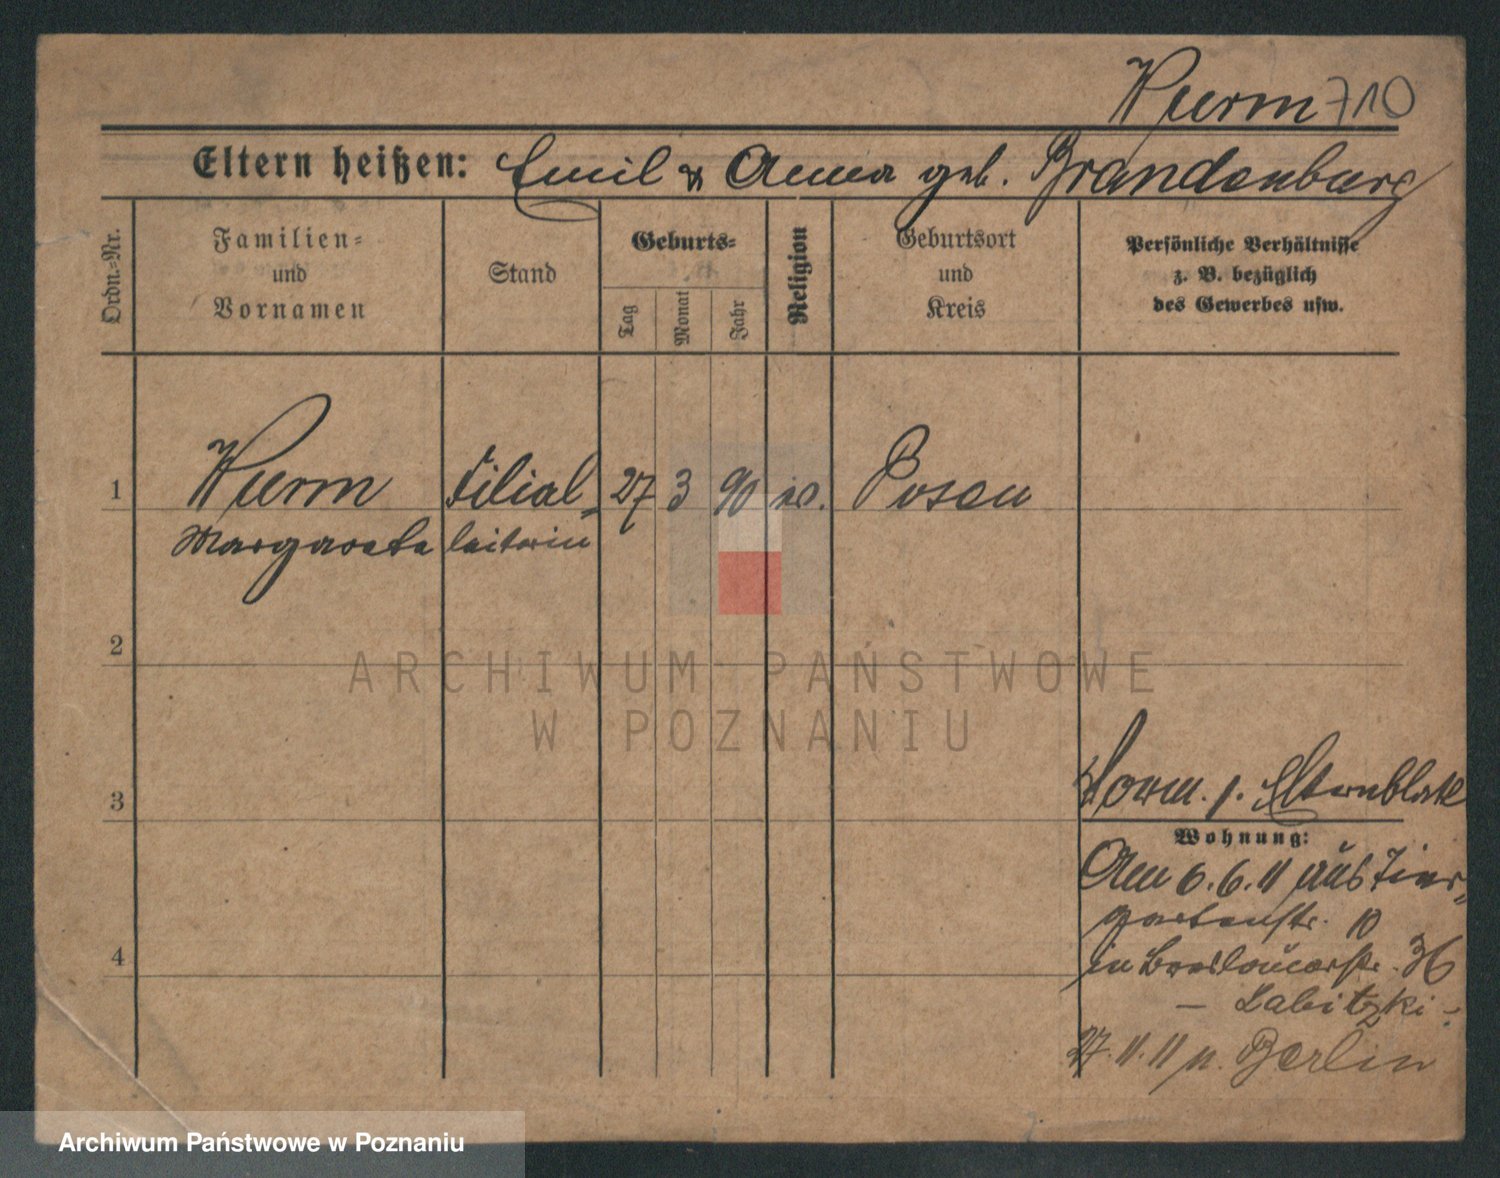 Wurm 710
Eltern heißen: Emil & Anna geb. Brandenburg
Ordn.=Nr.
Familien=
und
Vornamen
Stand
Geburts=
Tag
Monat
Jahr
Religion
Geburtsort
und
Kreis
Persönliche Verhältnisse
z. B. bezüglich
des Gewerbes usw.
1 Wurm Filial= 27 3 90 Posen
Margarete leiterin
2
ARCHIWUM PAŃSTWOWE
W POZNANIU
3
Vorm. s. Elternblatt
Wohnung:
Am 6.6.11 aus Tier=
gartenstr. 10
in Breslauerstr. 36
4
— Labitzki —
27.11.11 n. Berlin
Archiwum Państwowe w Poznaniu